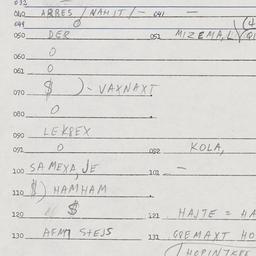 032
040 ARBES / NAHIT / - 041 -
044 0
050 DER 051 MIZEMA, L
060 0
061 0
070 $ ) - VAXNAXT
080 0
090 LEKPEX
091 0 092 KOLA,
100 SAMEXA, JE 101 -
110 $) HAMHAM
120 $ 121 HAJTE = HA
130 AFMT STEJS 131 GPEMAXT HO